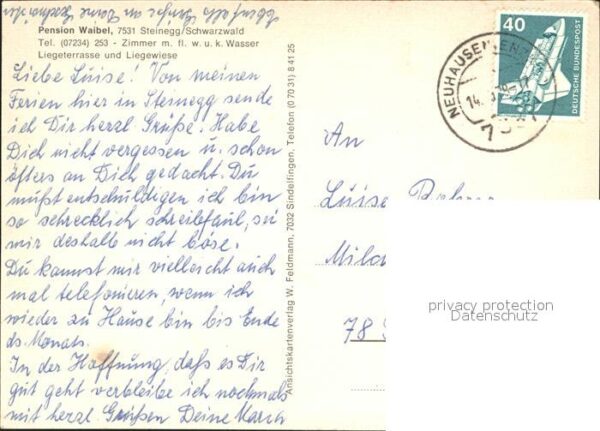 Pension Waibel, 7531 Steinegg/Schwarzwald
Tel. (07234) 253 - Zimmer m. fl. w. u. k. Wasser
Liegeterrasse und Liegewiese
Liebe Luise! Von meinen
Ferien hier in Steinegg sende
ich Dir herzl. Grüße. Habe
Dich nicht vergessen u. schon
öfters an Dich gedacht. Du
mußt entschuldigen ich bin
so schrecklich schreibfaul, sei
mir deshalb nicht böse.
Du kannst mir vielleicht auch
mal telefonieren, wenn ich
wieder zu Hause bin bis Ende
ds. Monats.
In der Hoffnung, daß es Dir
gut geht verbleibe ich nochmals
mit herzl. Grüßen Deine
Ansichtskartenverlag W. Feldmann, 7032 Sindelfingen, Telefon (0 70 31) 8 41 25
NEUHAUSEN
14.
40
DEUTSCHE BUNDESPOST
An
Luise
78
privacy protection
Datenschutz